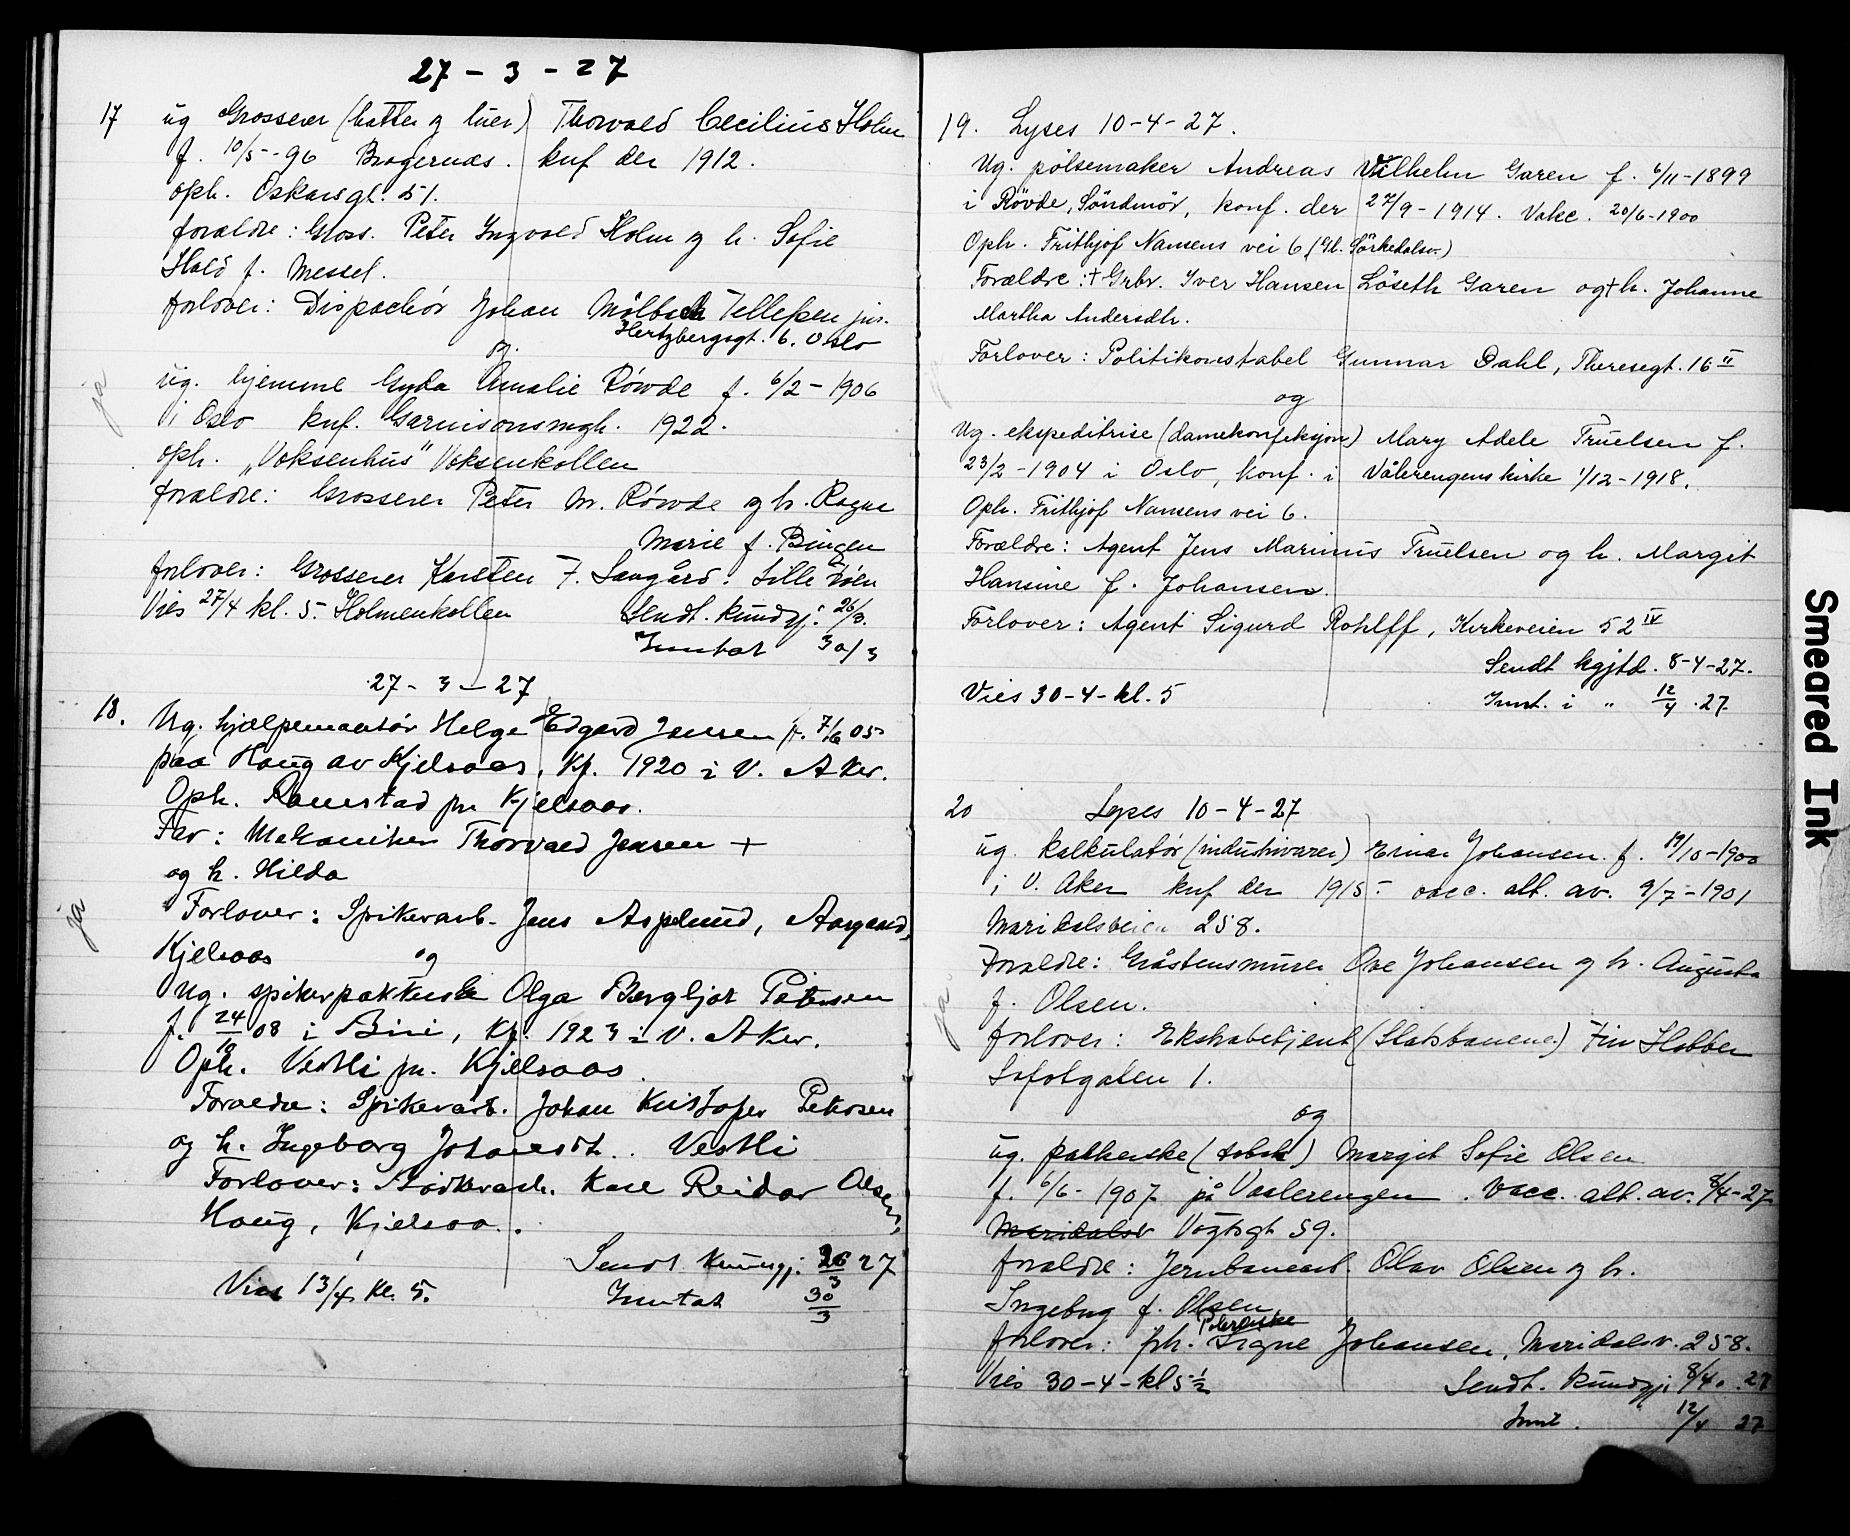 27 - 3 - 27
17 ug Grosserer (hatter og luer) Thorvald Cecilius Holm
f. 10/5 - 96 Bragernæs. knf der 1912.
oph. Oskarsgt. 51.
forældre: Gross. Peter Ingvald Holm og h. Sofie
Hald f. Messel.
forlover: Dispachör Johan Mölbach Tellefsen jun.
Hertzbergsgt. 6. Oslo
og.
ug. hjemme Gyda Amalie Röwde f. 6/2 - 1906
i Oslo knf. Garnisonsmgh. 1922.
oph. „Voksenhus" Voksenkollen
forældre: Grosserer Peter M. Röwde og h. Ragna
Marie f. Bingen
forlover: Grosserer Karsten F. Langård. Lille Frøen
Vies 27/4 kl. 5. Holmenkollen Sendt. kundgj: 26/3.
Inntat 30/3
ja
27 - 3 - 27
18. Ug. hjælpemontör Helge Edgard Jensen f. 7/6 05
paa Haug av Kjelsaas. Kf. 1920 i V. Aker.
Oph. Ramstad pr Kjelsaas.
Far: Mekaniker Thorvald Jensen +
og h. Hilda
Forlover: Spikerarb. Jens Asplund, Aasgaard,
Kjelsaas og
Ug. spikerpakkerske Olga Bergljot Petersen
f. 24/10 08 i Biri, Kf. 1923 i V. Aker.
Oph. Vestli pr. Kjelsaas
Forældre: Spikerarb. Johan Kristofer Petersen
og h. Ingeborg Johansdt. Vestli
Forlover: Kåre Reidar Olsen,
Haug, Kjelsaa.
Sendt kunngj: 26/3 27
Vies 13/4 kl. 5. Inntat 30/3
ja
19. Lyses 10-4-27.
Ug. pölsemaker Andreas Vilhelm Garen f. 6/11-1899
i Rövde, Söndmör, konf. der 27/9 - 1914. Vakc. 20/6-1900
Oph. Fritjof Nansens vei 6 (Gl. Sörkedalsv.)
Forældre: + Grbr. Iver Hansen Löseth Garen og + h. Johanne
Martha Andersdtr.
Forlover: Politikonstabel Gunnar Dahl, Theresegt. 16 II
og
Ug. ekspeditrise (damekonfeksjon) Mary Adele Truelsen f.
23/2-1904 i Oslo, konf. i Vålerengens kirke 1/12-1918.
Oph. Fritjof Nansens vei 6.
Forældre: Agent Jens Marinus Truelsen og h. Margit
Hansine f. Johansen.
Forlover: Agent Sigurd Rohlff, Kirkeveien 52 IV
Sendt kgjtd. 8-4-27.
Vies 30-4-kl. 5 Innt. i " 12/4 .27.
20 Lyses 10-4-27
ug. kalkulatör (industrivarer) Einar Johansen. f. 19/10-1900
i V. Aker knf der 1915. vacc. att. av. 9/7-1901
Maridalsveien 258.
Forældre: Gråstensmurer Ove Johansen og h. Augusta
f. Olsen.
forlover: Ekstrabetjent (Statsbanene) Finn Hobber
Sofotgaten 1.
og
ug. pakkerske (tobak) Margit Sofie Olsen
f. 6/6 - 1907 på Vaalerengen. vacc. att. av. 8/4-27
Maridalsv Vogtsgt 59.
forældre: Jernbanearb. Olav Olsen og h.
Ingeborg f. Olsen
Polererske
forlover: frk. Signe Johansen, Maridalsv. 258.
Vies 30-4-kl 5 1/2 Sendt. kundgj: 8/4. 27
Innt. 12/4 27
ja
Smeared Ink